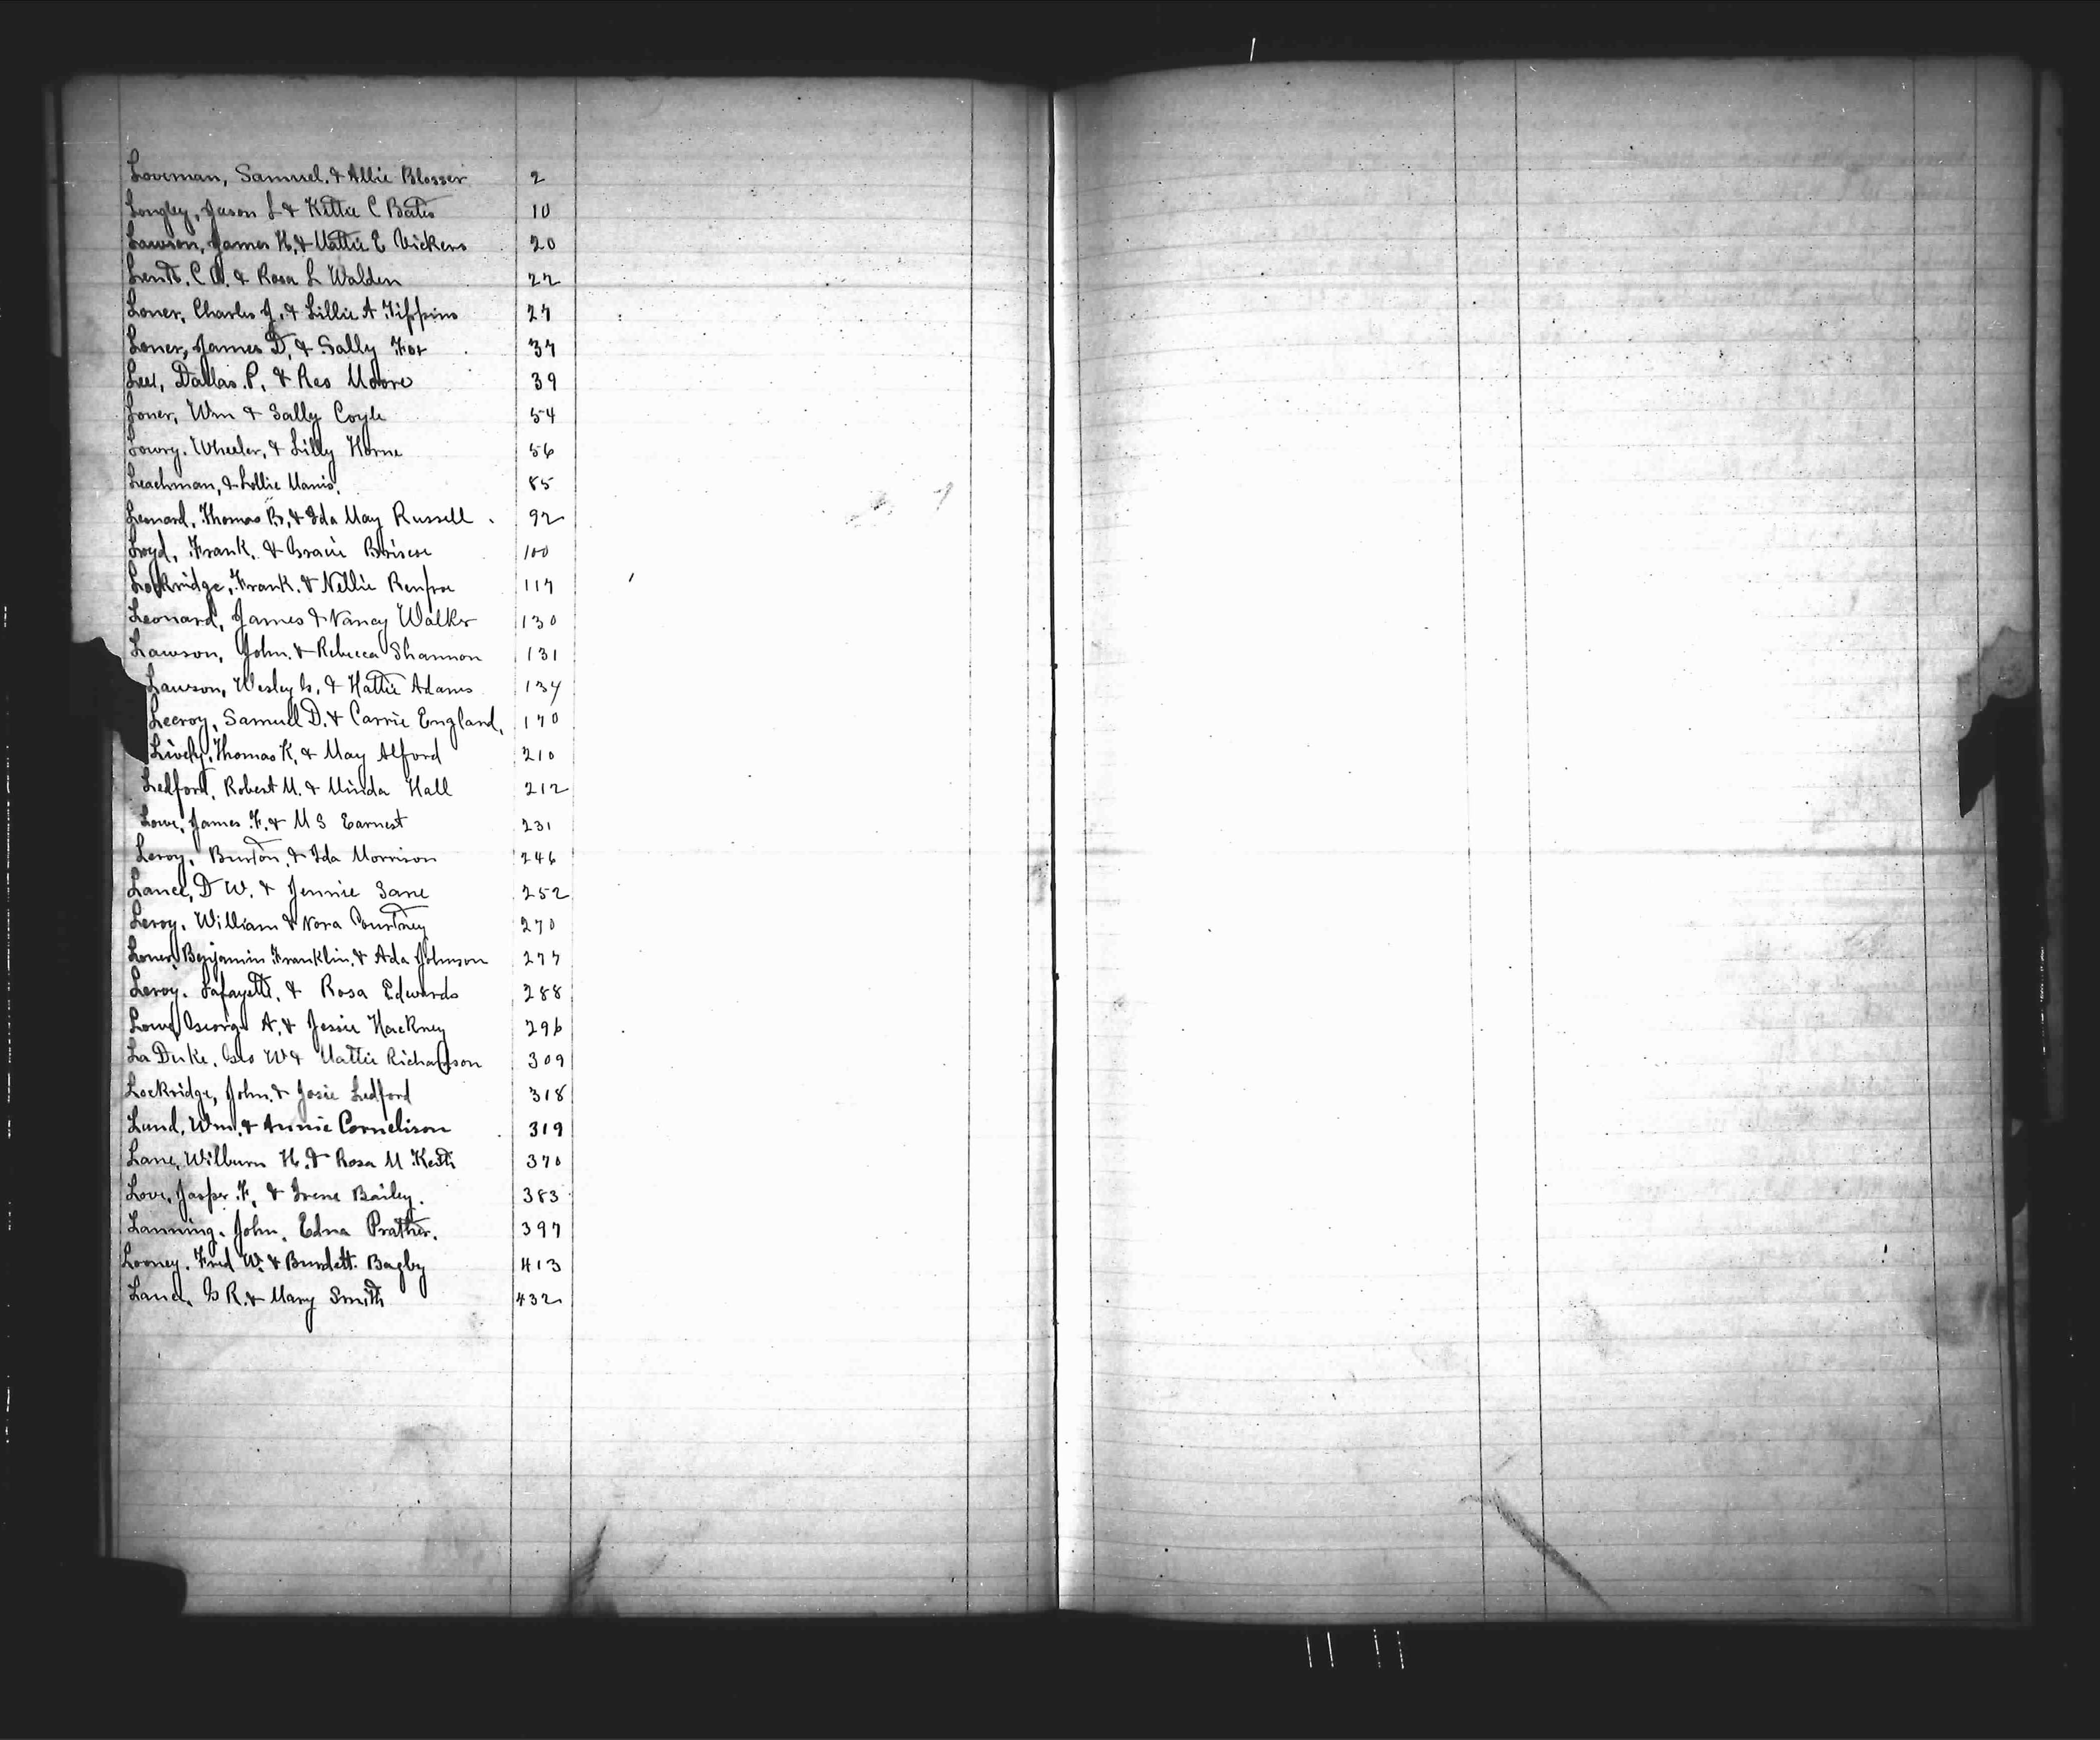 Loveman, Samuel. & Allie Blosser 2
Longley, Jason L & Kittie C Bates 10
Lawson, James H. & Mattie E Vickers 20
C W. & Rosa L Walden 22
Loner, Charles J. & Lillie A Tippins 27
Loner, James D. & Sally Fox 37
Lee, Dallas. P. & Reo Moore 39
Loner, Wm & Sally Coyle 54
Lowry. Wheeler, & Lilly Horne 56
Leachman, & Lollie Manis. 85
Lenard, Thomas B, & Ida May Russell 92
Loyd, Frank. & Gracie Briscoe 100
Lockridge, Frank. & Nellie Renfroe 117
Leonard, James & Nancy Walker 130
Lawson, John. & Rebecca Shannon 131
Lawson, Wesley G. & Hattie Adams 134
Leeroy, Samuel D. & Carrie England, 170
Lively, Thomas K. & May Alford 210
Ledford, Robert M. & Minda Hall 212
Lowe, James F. & M S Earnest 231
Leroy, Burton, & Ida Morrison 246
Lance, D W. & Jennie Sane 252
Leroy, William & Nora Courtney 270
Loner, Benjamin Franklin, & Ada Johnson 277
Leroy. Lafayette, & Rosa Edwards 288
Lowe, George A. & Jessie Hackney 296
La Duke, Geo W & Mattie Richardson 309
Lockridge, John. & Josie Ledford 318
Lund, Wm. & Annie Cornelison 319
Lane, Wilburn H. & Rosa M Keith 370
Love, Jasper F. & Irene Bailey. 383
Lanning, John, Edna Prather. 397
Looney. Fred W. & Burdett Bagby 413
Land, G R. & Mary Smith 432